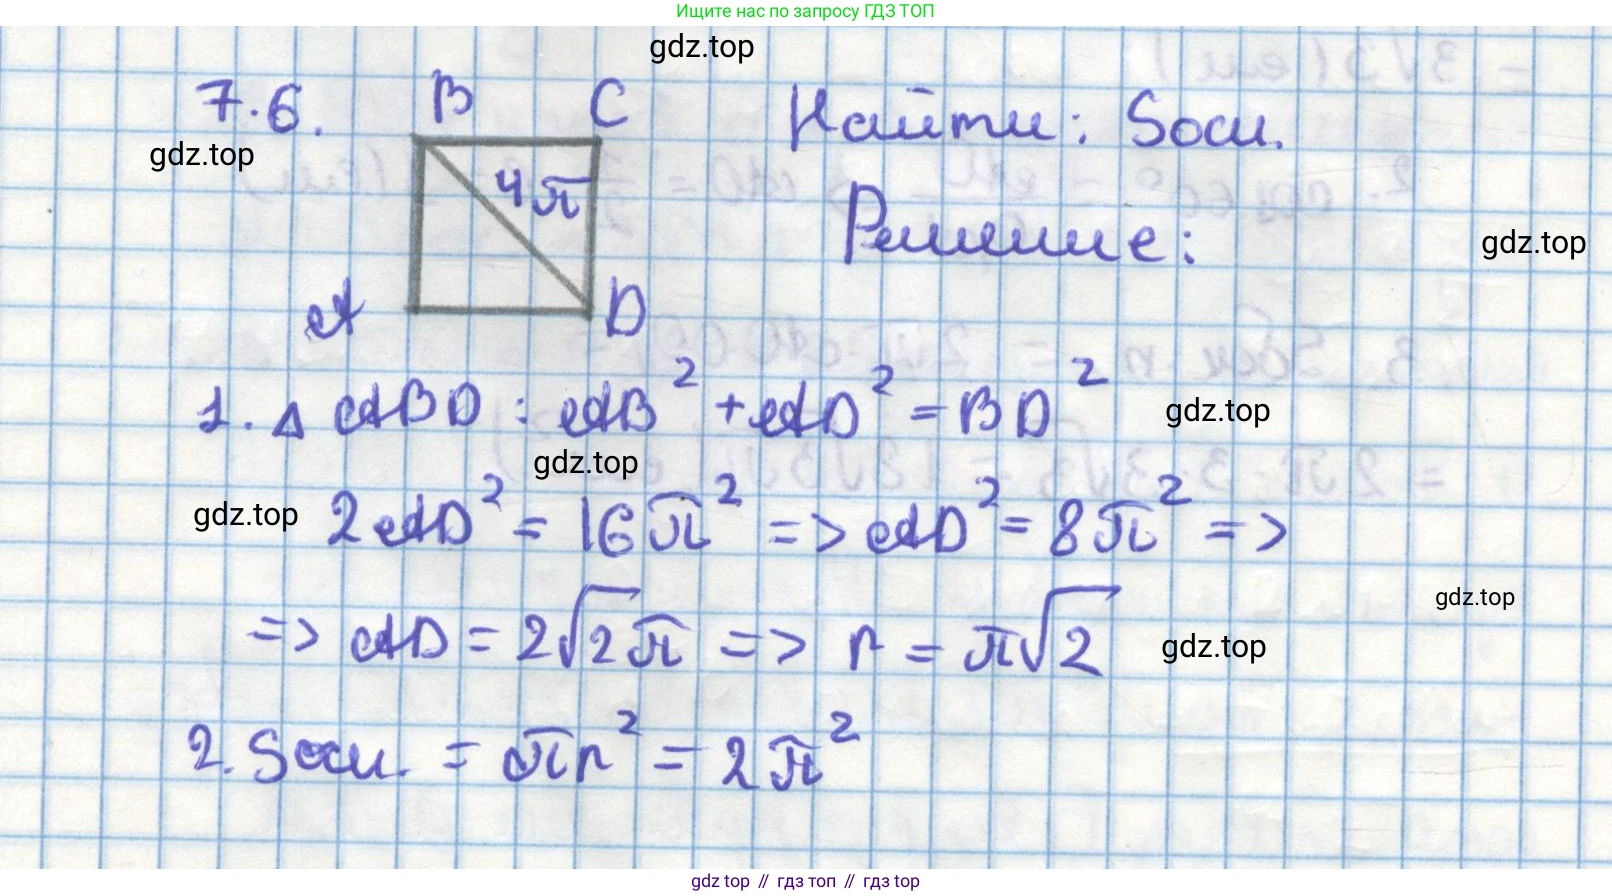 Ищите нас по запросу ГДЗ ТОП
gdz.top
7.6. B C Найти: Sосн.
gdz.top
4π
Решение:
gdz.top
A D
1. Δ ABD : AB² + AD² = BD²
gdz.top
gdz.top
gdz.top
2AD² = 16π² => AD² = 8π² =>
gdz.top
=> AD = 2√2π => r = π√2
gdz.top
2. Sосн. = πr² = 2π²
gdz top // гдз топ // gdz top